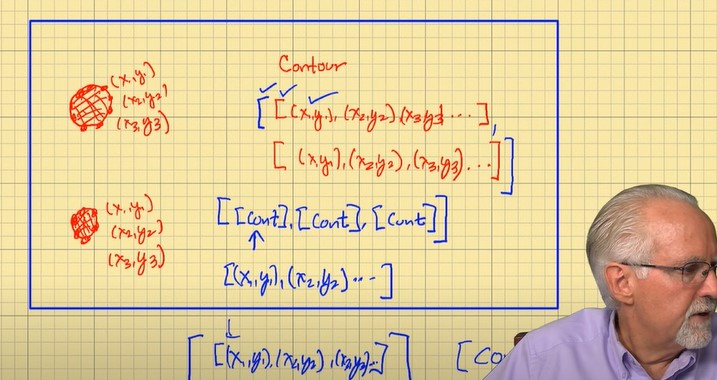 Contour
(x₁,y₁)
(x₂,y₂)
(x₃,y₃)
[[(x₁,y₁),(x₂,y₂),(x₃,y₃ ...],
[(x₁,y₁),(x₂,y₂),(x₃,y₃)...]]
(x₁,y₁)
(x₂,y₂)
(x₃,y₃)
[[cont],[cont],[cont]]
[(x₁,y₁),(x₂,y₂)...]
[[(x₁,y₁),(x₂,y₂),(x₃,y₃)...]]
[Co